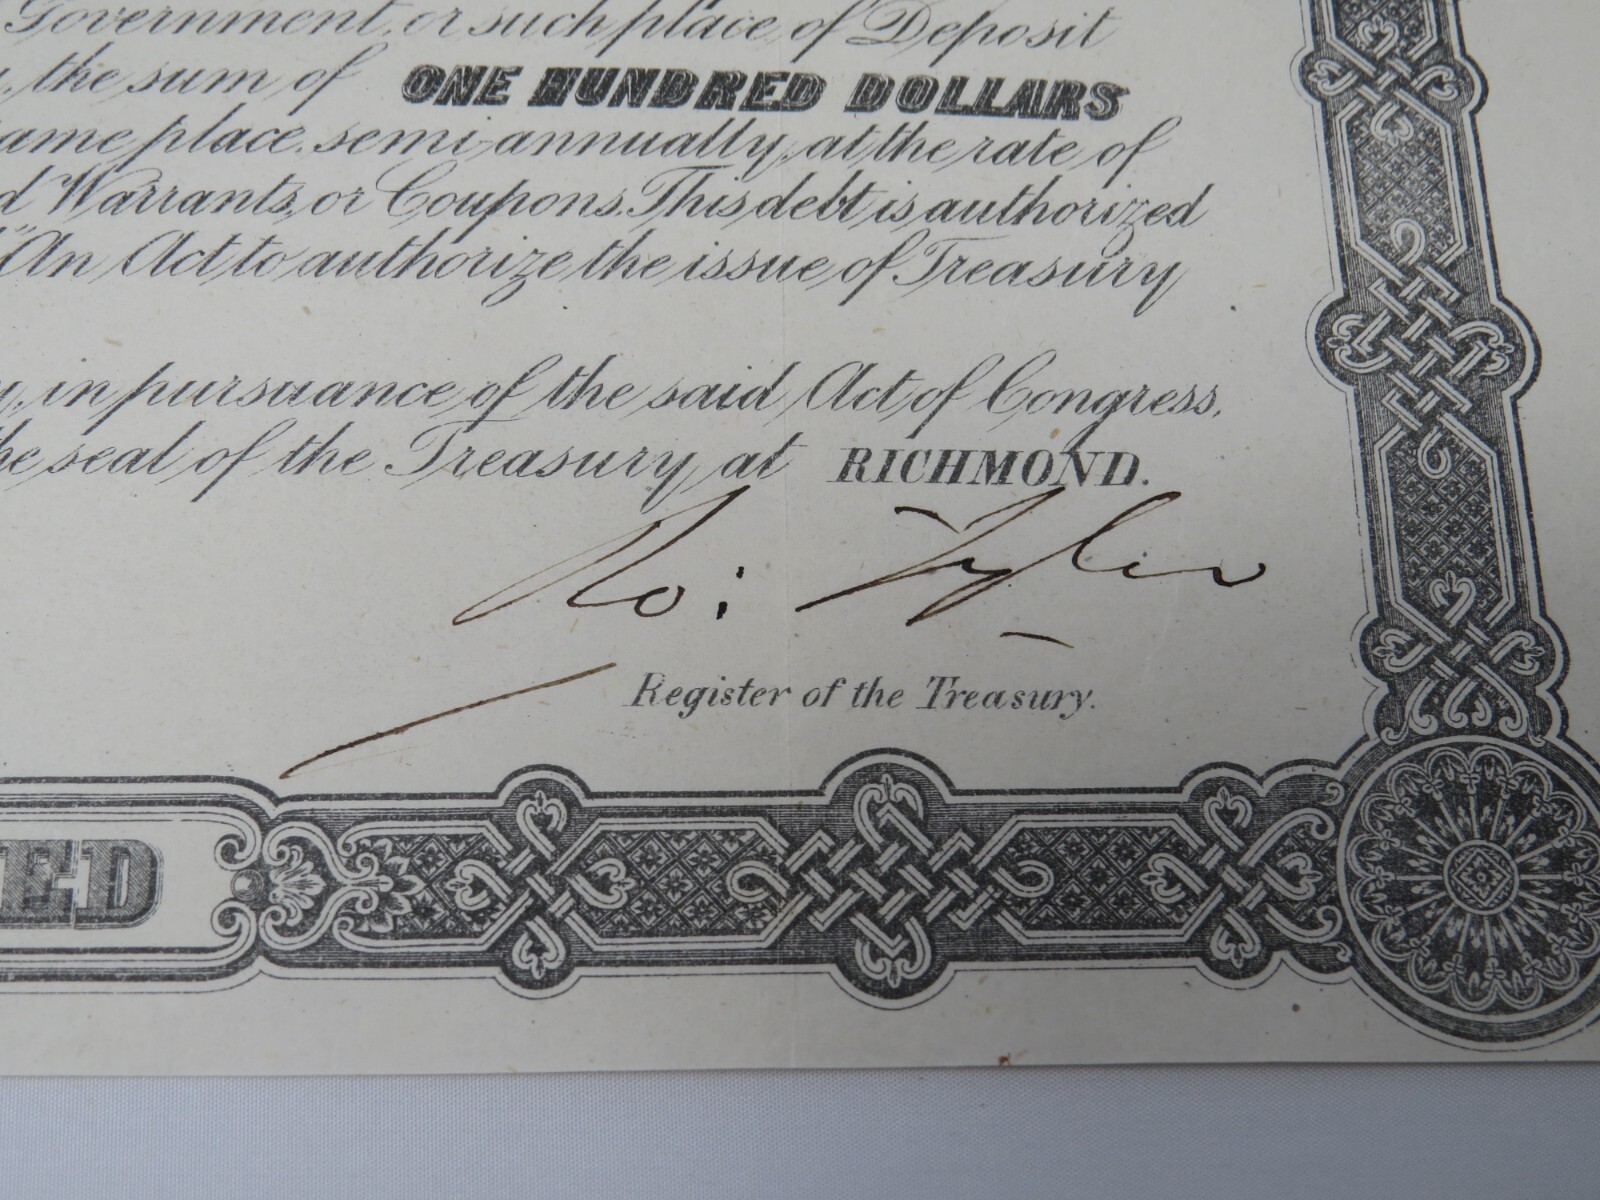 Government, or such place of Deposit
, the sum of ONE HUNDRED DOLLARS
ame place, semi-annually, at the rate of
d Warrants, or Coupons. This debt is authorized
"An Act to authorize the issue of Treasury
y, in pursuance of the said Act of Congress,
he seal of the Treasury, at RICHMOND.
Ro: Tyler
Register of the Treasury.
ED